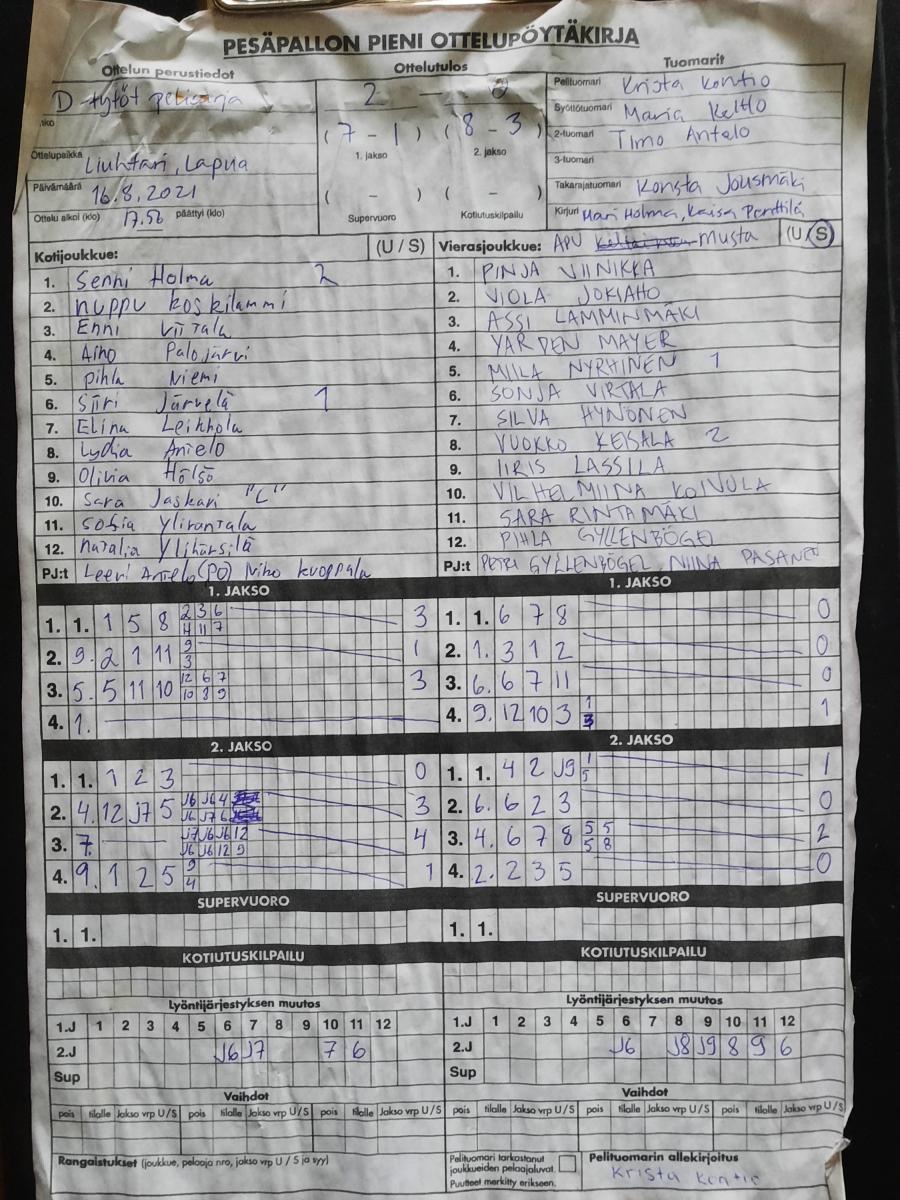 PESÄPALLON PIENI OTTELUPÖYTÄKIRJA
Ottelun perustiedot
Ottelutulos
Tuomarit
D-tytöt
2 – 0
Pelituomari Krista Kontio
(7 – 1) (8 – 3)
Syöttötuomari Maria Keltto
1. jakso 2. jakso
2-tuomari Timo Antelo
Ottelupaikka Liuhtari, Lapua
3-tuomari
Päivämäärä 16.8.2021
( – ) ( – )
Takarajatuomari Konsta Jousmäki
Ottelu alkoi (klo) 17.56 päättyi (klo)
Supervuoro Kotiutuskilpailu
Kirjuri Mari Holma, Kaisa Penttilä
Kotijoukkue: (U / S)
1. Senni Holma 2
2. nuppu koskilammi
3. Enni viitala
4. Aino Palojärvi
5. pihla Niemi
6. Siiri Järvelä 1
7. Elina Leikkola
8. Lydia Antelo
9. Olivia Hölsö
10. Sara Jaskari "C"
11. Sofia Ylirantala
12. natalia Ylihärsilä
PJ:t Leevi Antelo (PO) Niko kuoppala
Vierasjoukkue: APU Musta (U / S)
1. PINJA VIINIKKA
2. VIOLA JOKIAHO
3. ASSI LAMMINMÄKI
4. YARDEN MAYER
5. MIILA NYRHINEN 1
6. SONJA VIRTALA
7. SILVA HYNÖNEN
8. VUOKKO KEISALA 2
9. IIRIS LASSILA
10. VILHELMIINA KOIVULA
11. SARA RINTAMÄKI
12. PIHLA GYLLENBÖGEL
PJ:t PETRI GYLLENBÖGEL, NIINA PASANEN
1. JAKSO
1. 1. 1 5 8 2 3 6 3
4 11 7
2. 9. 2 1 11 9 1
3
3. 5. 5 11 10 12 6 7 3
10 8 9
4. 1.
1. JAKSO
1. 1. 6 7 8 0
2. 1. 3 1 2 0
3. 6. 6 7 11 0
4. 9. 12 10 3 1 1
3
2. JAKSO
1. 1. 1 2 3 0
2. 4. 12 J7 5 J6 J6 4 3
J6 J7 6
3. 7. J7 J6 J6 12 4
J6 J6 12 9
4. 9. 1 2 5 9 1
4
2. JAKSO
1. 1. 4 2 J9 1 1
5
2. 6. 6 2 3 0
3. 4. 6 7 8 5 5 2
5 8
4. 2. 2 3 5 0
SUPERVUORO
1. 1.
SUPERVUORO
1. 1.
KOTIUTUSKILPAILU
KOTIUTUSKILPAILU
Lyöntijärjestyksen muutos
1.J 1 2 3 4 5 6 7 8 9 10 11 12
2.J J6 J7 7 6
Sup
Lyöntijärjestyksen muutos
1.J 1 2 3 4 5 6 7 8 9 10 11 12
2.J J6 J8 J9 8 9 6
Sup
Vaihdot
pois tilalle Jakso vrp U / S pois tilalle Jakso vrp U / S pois tilalle Jakso vrp U / S
Vaihdot
pois tilalle Jakso vrp U / S pois tilalle Jakso vrp U / S pois tilalle Jakso vrp U / S
Rangaistukset (joukkue, pelaaja nro, jakso vrp U / S ja syy)
Pelituomari tarkastanut
joukkueiden pelaajaluvat.
Puutteet merkitty erikseen.
Pelituomarin allekirjoitus
Krista Kontio